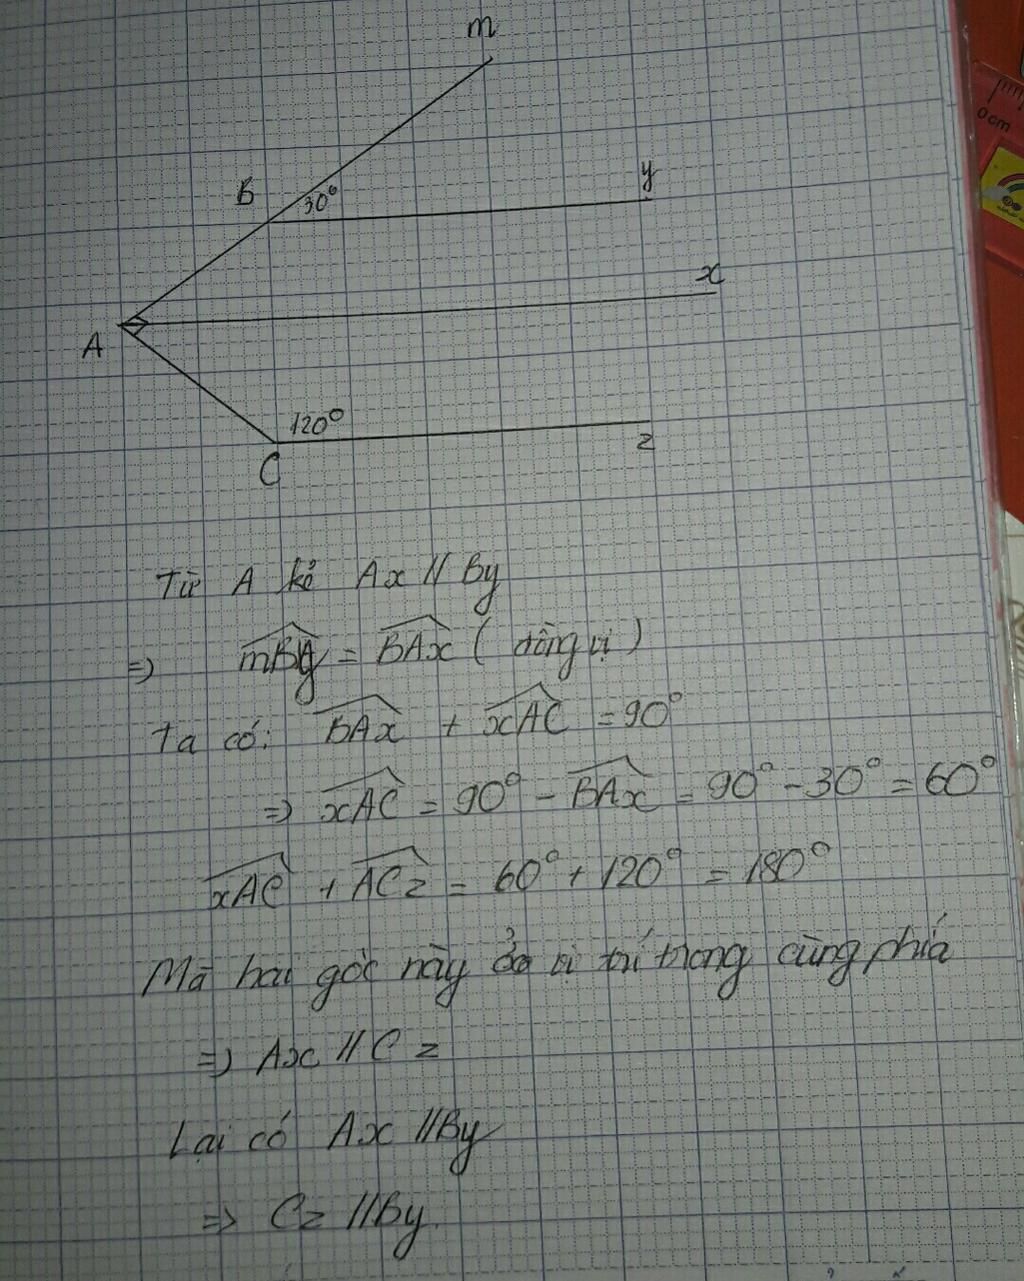 m
B 30°
y
x
A
120°
C
z
0 cm
Từ A kẻ Ax // By
=> mBy = BAx ( đồng vị )
Ta có: BAx + xAC = 90°
=> xAC = 90° - BAx = 90° - 30° = 60°
xAC + ACz = 60° + 120° = 180°
Mà hai góc này ở vị trí trong cùng phía
=> Ax // Cz
Lại có Ax // By
=> Cz // By.